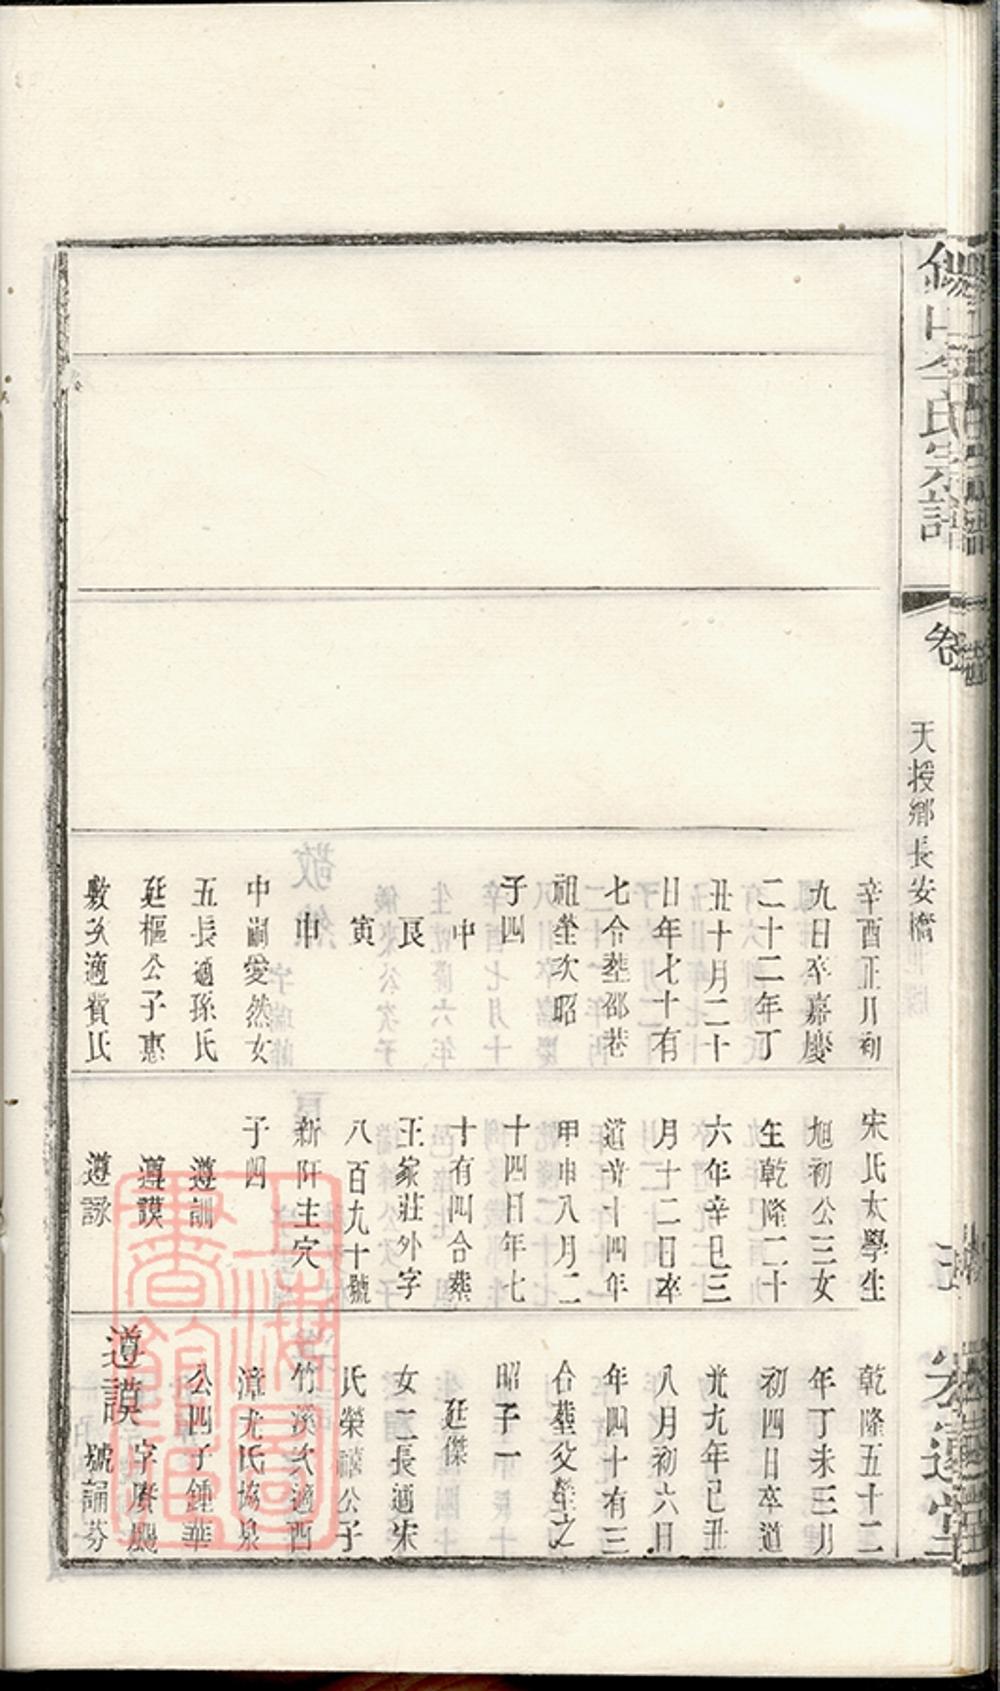 錫山李氏宗譜
卷
天授鄉長安橋
辛酉正月初
九日卒嘉慶
二十二年丁
丑十月二十
日年七十有
七合葬邵巷
祖塋次昭
子四
中
艮
寅
申
中嗣愛然女
五長適孫氏
延樞公子惠
敷次適費氏
宋氏太學生
旭初公三女
生乾隆二十
六年辛巳三
月十二日卒
道光十四年
甲申八月二
十四日年七
十有四合葬
王家莊外字
八百九十號
新阡主穴
子四
遵訓
遵謨
遵詠
乾隆五十二
年丁未三月
初四日卒道
光九年己丑
八月初六日
年四十有三
合葬父塋之
昭子一
廷傑
女二長適宋
氏榮禧公子
竹溪次適西
漳尤氏協泉
公四子鍾華
遵謨
字賡颺
號誦芬
上海圖書館藏